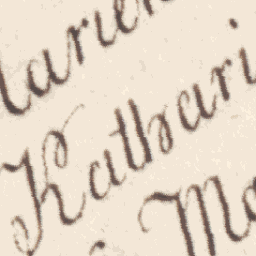 Marien
Kathari
Ma